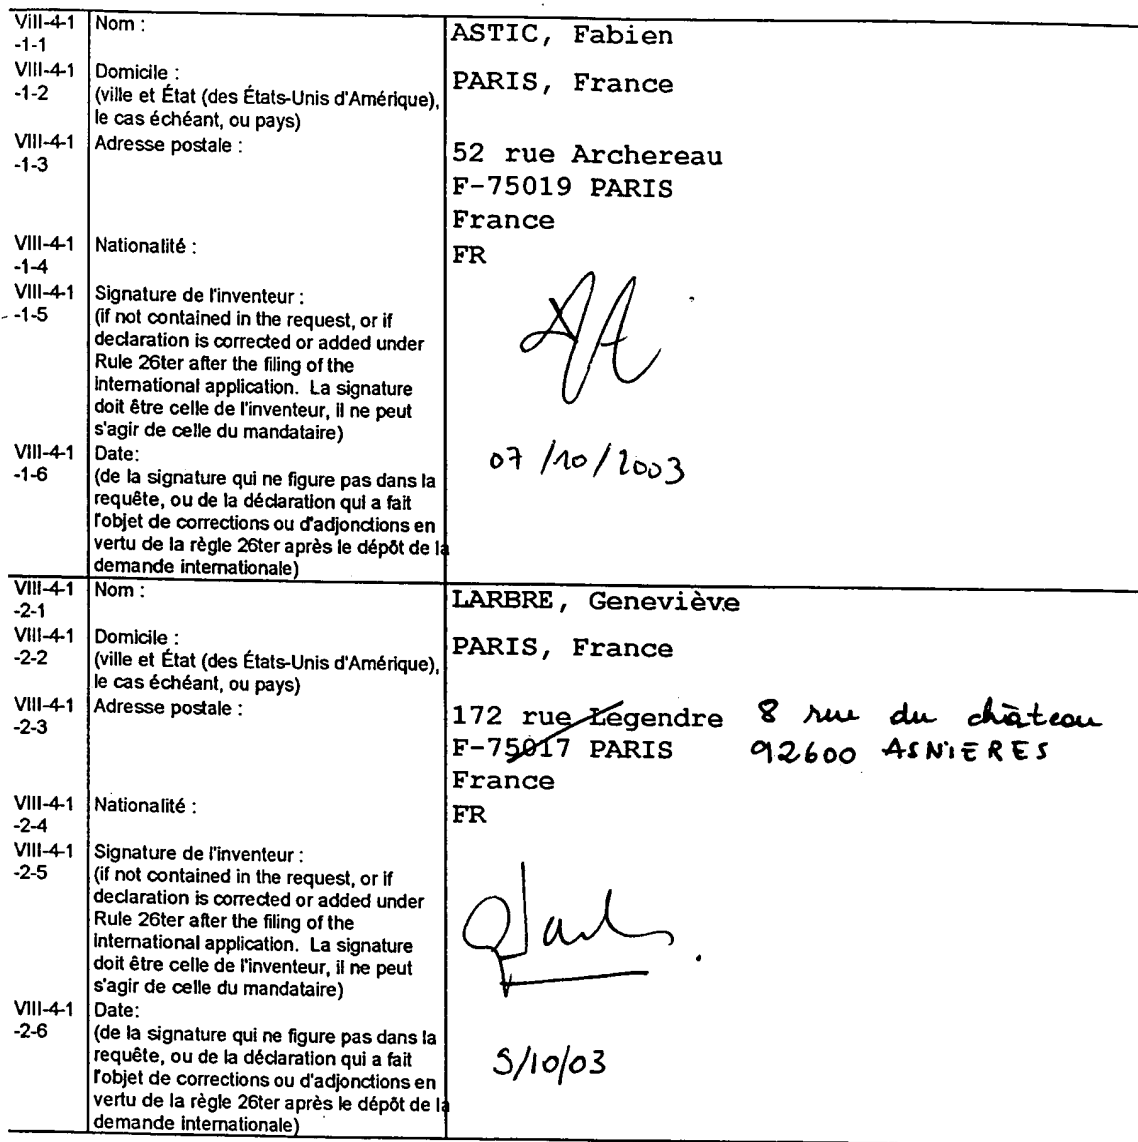 VIII-4-1 Nom : ASTIC, Fabien
-1-1
VIII-4-1 Domicile : PARIS, France
-1-2 (ville et État (des États-Unis d'Amérique),
le cas échéant, ou pays)
VIII-4-1 Adresse postale : 52 rue Archereau
-1-3 F-75019 PARIS
France
VIII-4-1 Nationalité : FR
-1-4
VIII-4-1 Signature de l'inventeur :
-1-5 (if not contained in the request, or if
declaration is corrected or added under
Rule 26ter after the filing of the
international application. La signature
doit être celle de l'inventeur, il ne peut
s'agir de celle du mandataire)
VIII-4-1 Date: 07/10/2003
-1-6 (de la signature qui ne figure pas dans la
requête, ou de la déclaration qui a fait
l'objet de corrections ou d'adjonctions en
vertu de la règle 26ter après le dépôt de la
demande internationale)
VIII-4-1 Nom : LARBRE, Geneviève
-2-1
VIII-4-1 Domicile : PARIS, France
-2-2 (ville et État (des États-Unis d'Amérique),
le cas échéant, ou pays)
VIII-4-1 Adresse postale : 172 rue Legendre 8 rue du château
-2-3 F-75017 PARIS 92600 ASNIERES
France
VIII-4-1 Nationalité : FR
-2-4
VIII-4-1 Signature de l'inventeur :
-2-5 (if not contained in the request, or if
declaration is corrected or added under
Rule 26ter after the filing of the
international application. La signature
doit être celle de l'inventeur, il ne peut
s'agir de celle du mandataire)
VIII-4-1 Date:
-2-6 (de la signature qui ne figure pas dans la
requête, ou de la déclaration qui a fait 5/10/03
l'objet de corrections ou d'adjonctions en
vertu de la règle 26ter après le dépôt de la
demande internationale)